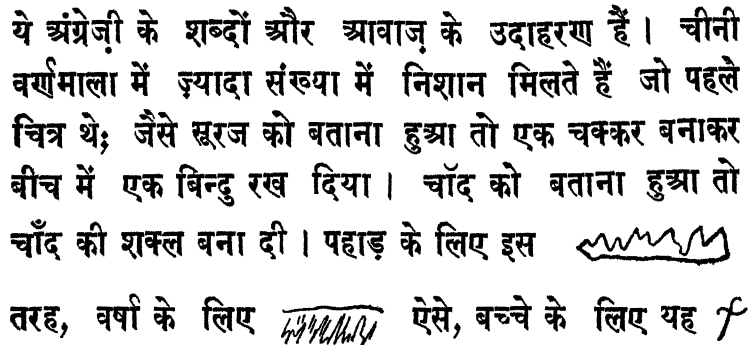 ये अंग्रेज़ी के शब्दों और आवाज़ के उदाहरण हैं। चीनी
वर्णमाला में ज़्यादा संख्या में निशान मिलते हैं जो पहले
चित्र थे; जैसे सूरज को बताना हुआ तो एक चक्कर बनाकर
बीच में एक बिन्दु रख दिया। चॉद को बताना हुआ तो
चाँद की शक्ल बना दी। पहाड़ के लिए इस
तरह, वर्षा के लिए ऐसे, बच्चे के लिए यह